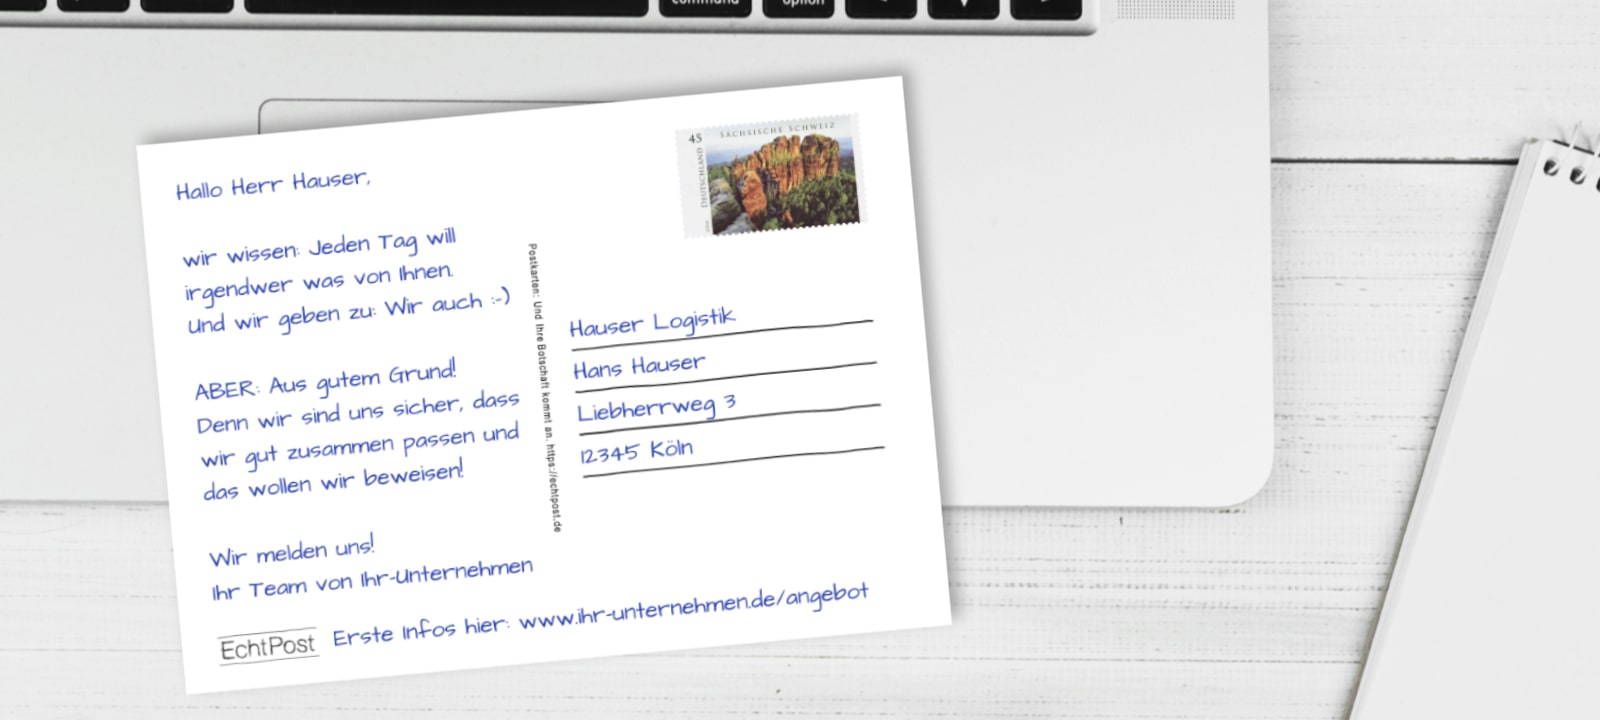 command
option
Hallo Herr Hauser,
wir wissen: Jeden Tag will
irgendwer was von Ihnen.
Und wir geben zu: Wir auch :-)
ABER: Aus gutem Grund!
Denn wir sind uns sicher, dass
wir gut zusammen passen und
das wollen wir beweisen!
Wir melden uns!
Ihr Team von Ihr-Unternehmen
EchtPost
Erste Infos hier: www.ihr-unternehmen.de/angebot
Postkarten: Und Ihre Botschaft kommt an. https://echtpost.de
45
SÄCHSISCHE SCHWEIZ
DEUTSCHLAND
Hauser Logistik
Hans Hauser
Liebherrweg 3
12345 Köln